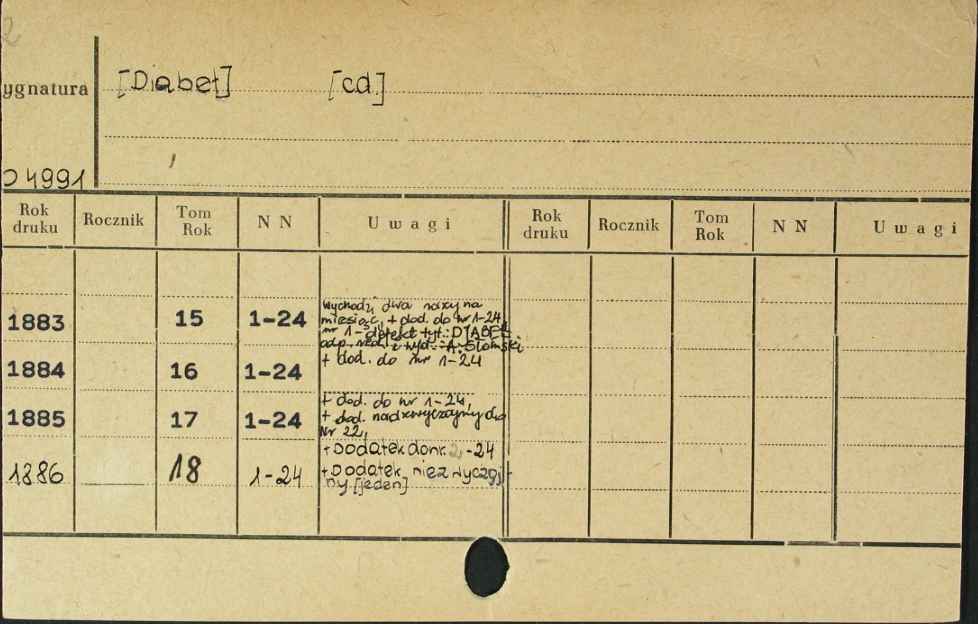 2
ygnatura [Diabeł] [cd.]
04991
Rok druku Rocznik Tom Rok N N Uwagi Rok druku Rocznik Tom Rok N N Uwagi
1883 15 1-24 Wychodzi dwa razy na
miesiąc, + dod. do nr 1-24,
nr 1- defekt tyt.: DIABEŁ
odp. red. i wyd. A. Słomski
1884 16 1-24 + dod. do nr 1-24
1885 17 1-24 + dod. do nr 1-24,
+ dod. nadzwyczajny do
Nr 22,
+ Dodatek do nr 2-24
1886 18 1-24 + Dodatek niezwyczaj-
ny [jeden]